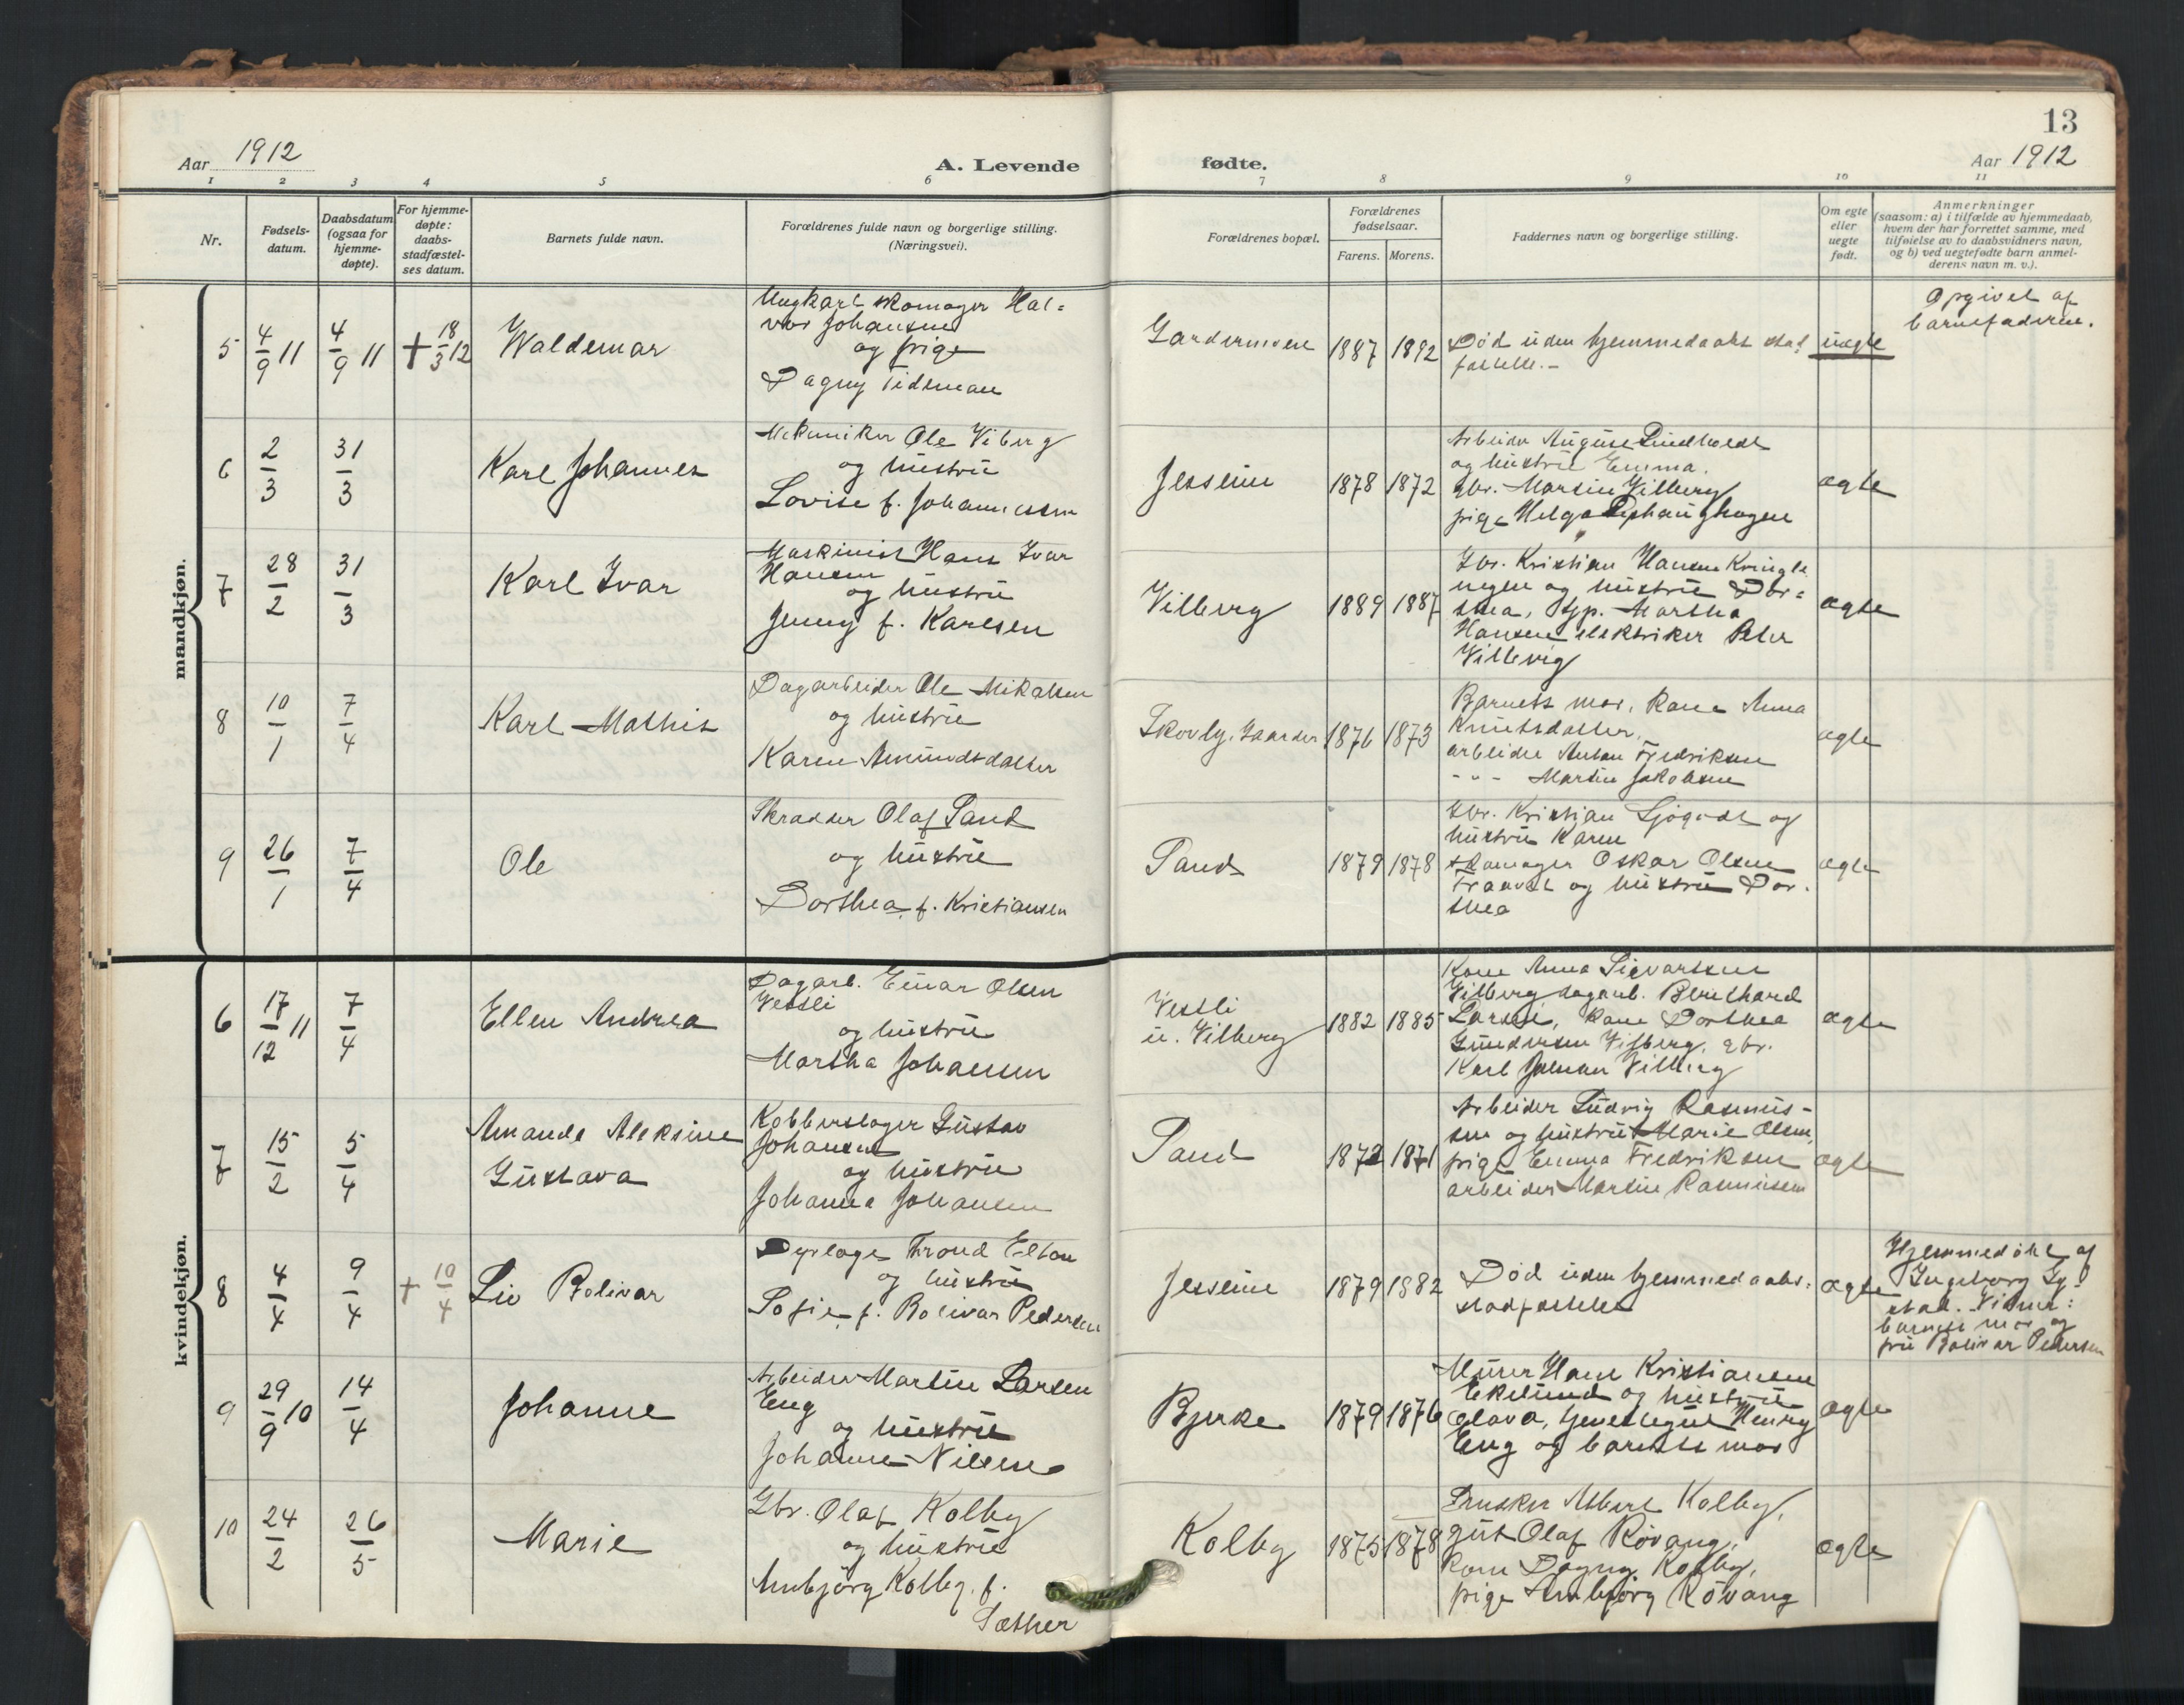 13
Aar 1912
A. Levende
fødte.
Aar 1912
1 2 3 4 5 6 7 8 9 10 11
Nr.
Fødsels-
datum.
Daabsdatum
(ogsaa for
hjemme-
døpte).
For hjemme-
døpte:
daabs-
stadfæstel-
ses datum.
Barnets fulde navn.
Forældrenes fulde navn og borgerlige stilling.
(Næringsvei).
Forældrenes bopæl.
Forældrenes
fødselsaar.
Farens. Morens.
Faddernes navn og borgerlige stilling.
Om egte
eller
uegte
født.
Anmerkninger
(saasom: a) i tilfælde av hjemmedaab,
hvem der har forrettet samme, med
tilføielse av to daabsvidners navn,
og b) ved uegtefødte barn anmel-
derens navn m. v.).
mandkjøn.
5
4/9 11
4/9 11
+ 18/3 12
Waldemar
Ungkarl skomager Hal=
vor Johansen
og pige
Dagny Tideman
Gardermoen
1887 1892
Død uden hjemmedaabs stad
fæstelse.-
uægte
Opgivet af
barnefaderen.
6
2/3
31/3
Karl Johannes
Mekaniker Ole Viberg
og hustru
Lovise f. Johannessen
Jessein
1878 1872
Arbeider August Lindholdt
og hustru Emma.
gbr. Martin Vilberg
pige Helga
ægte
7
28/2
31/3
Karl Ivar
Maskinist Hans Ivar
Hansen
og hustru
Jenny f. Karlsen
Vilberg
1889 1887
Gbr. Kristian Hansen Kringle
neglen og hustru Dor=
thea, Martha
Hansen elektriker Peter
Vilberg
ægte
8
10/1
7/4
Karl Mathis
Dagarbeider Ole Mikalsen
og hustru
Karen Amundsdatter
Skovly, Gaarder
1876 1873
Barnets mor, kone Anna
Knutsdatter,
arbeider Anton Fredriksen
- " - Martin Jakobsen
ægte
9
26/1
7/4
Ole
Skrædder Olaf Sand
og hustru
Dorthea f. Kristiansen
Sand
1879 1878
Gbr. Kristian Sjøgodt og
hustru Karen
skomager Oskar Olsen
og hustru Dor.
thea
ægte
kvindekjøn.
6
17/12 11
7/4
Ellen Andrea
Dagarb. Einar Olsen
Vestli
og hustru
Martha Johansen
Vestli
u. Vilberg
1882 1885
Kone Anna Sigvartsen
Vilberg dagarb. Bernthard
Larsen, kone Dorthea
Gundersen Vilberg, gbr.
Karl Johnan Vilberg
ægte
7
15/2
5/4
Amanda Aleksine
Gustava
Kobberslager Gustav
Johansen
og hustru
Johanna Johansen
Sand
1872 1871
Arbeider Ludvig Rasmus-
sen og hustru Marie Olsen,
pige Emma Fredriksen
arbeider Martin Rasmussen
ægte
8
4/4
9/4
+ 10/4
Liv Bolivar
Dyrlæge Trond Elton
og hustru
Sofie f. Bolivar Pedersen
Jessein
1879 1882
Død uden hjemmedaabs=
stadfæstelse
ægte
Hjemmedøbt af
Ingeborg Sy-
stad. Vidner:
barnets mor og
fru Bolivar Pedersen
9
29/9 10
14/4
Johanne
Arbeider Martin Larsen
Eng
og hustru
Johanne Nilsen
Bjerke
1879 1876
Murer Hans Kristiansen
Ekelund og hustru
Olava, Henry
Eng og barnets mor
ægte
10
24/2
26/5
Marie
Gbr. Olaf Kolby
og hustru
Anbjørg Kolby f.
Sæther
Kolby
1875 1878
Albert Kolby,
gut Olaf Røvang,
kone Dagny Kolby,
pige Anbjørg Røvang
ægte